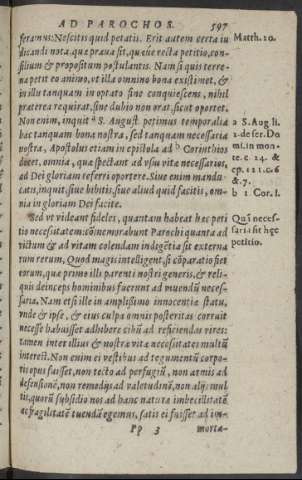 AD PAROCHOS. 597
feramus: Nescitis quid petatis. Erit autem certa iu
dicandi nota, quæ praua sit, quæue recta petitio, con-
silium & propositum postulantis. Nam si quis terre-
na petit eo animo, vt illa omnino bona existimet, &
in illis tanquam in optato fine conquiescens, nihil
præterea requirat, sine dubio non orat, sicut oportet.
Non enim, inquit a S. August. petimus temporalia
hæc tanquam bona nostra, sed tanquam necessaria
nostra. Apostolus etiam in epistola ad b Corinthios
docet, omnia, quæ spectant ad vsus vitæ necessarios,
ad Dei gloriam referri oportere. Siue enim mandu-
catis, inquit, siue bibitis, siue aliud quid facitis, om-
nia in gloriam Dei facite.
Sed vt videant fideles, quantam habeat hæc peti
tio necessitatem: cõmemorabunt Parochi quanta ad
victum & ad vitam colendam indigẽtia sit externa
rum rerum, Quod magis intelligent, si cõparatio fiet
eorum, quæ primo illi parenti nostri generis, & reli-
quis deinceps hominibus fuerunt ad viuendũ neces-
saria. Nam etsi ille in amplissimo innocentiæ statu,
vnde & ipse, & eius culpa omnis posteritas corruit
necesse habuisset adhibere cibũ ad reficiendas vires:
tamen inter illius & nostræ vitæ necessitates multũ
interest. Non enim ei vestibus ad tegumentũ corpo-
ris opus fuisset, non tecto ad perfugiũ, non armis ad
defensionẽ, non remedijs ad valetudinẽ, non alijs mul
tis, quorũ subsidio nos ad hanc naturæ imbecillitatẽ
ac fragilitatẽ tuendã egemus, satis ei fuisset ad im-
Pp 3 morta-
Matth. 20.
a S. Aug li.
2. de ser. Do
mi. in mon-
te. c. 24. &
ep. 121. c. 6
& 7.
b 1 Cor. 1.
Quã neces-
saria sit hęc
petitio.